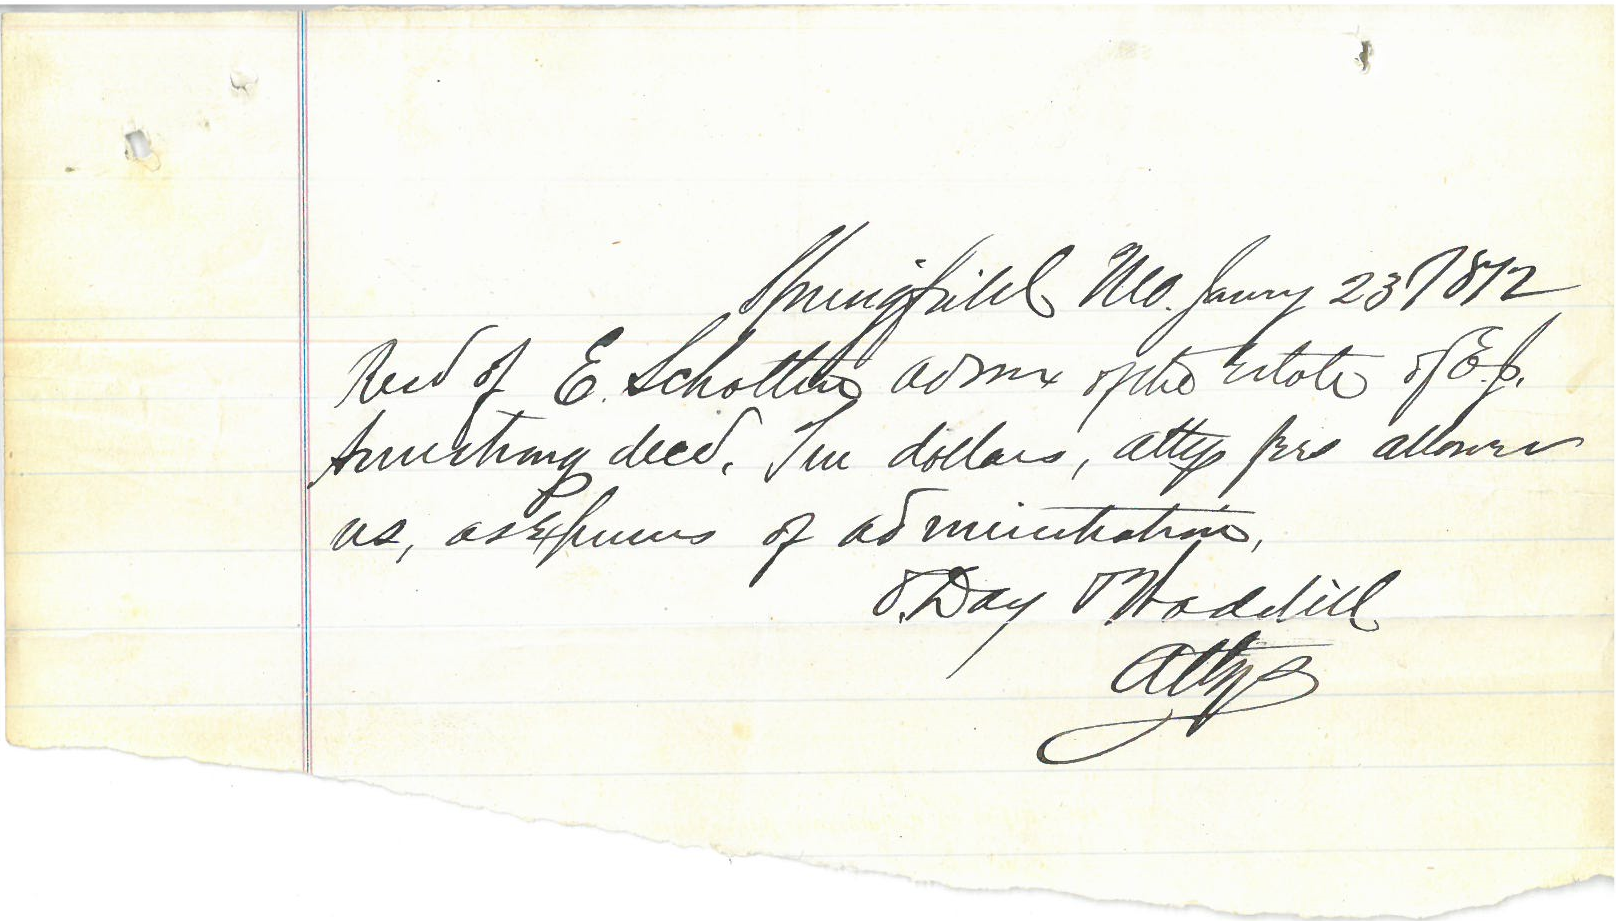 Springfield Mo. Janry 23 1872
Recd of E. Schotten admx of the Estate of E. J.
Armstrong decd. Ten dollars, attys fees allowed
us, as Expenses of administration,
Day Waddill
Attys